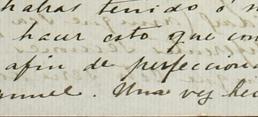 habras tenido ó n
hacer esto que con
afin de perfecciona
nuel. Una vez hec